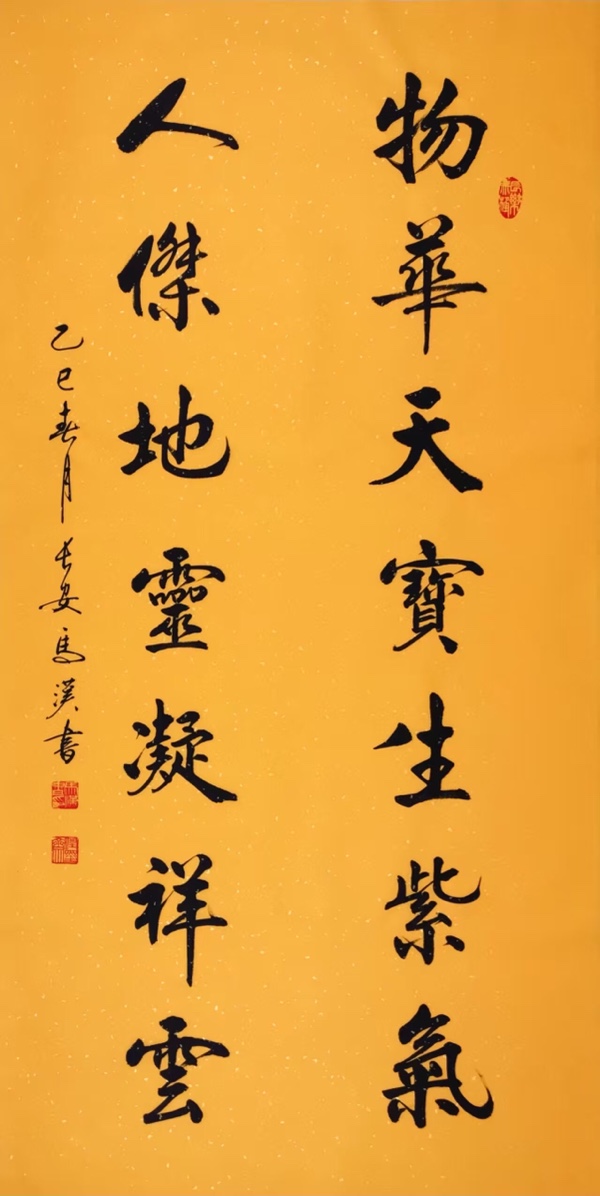 物華天寶生紫氣
人傑地靈凝祥雲
乙巳春月長安馬漢書